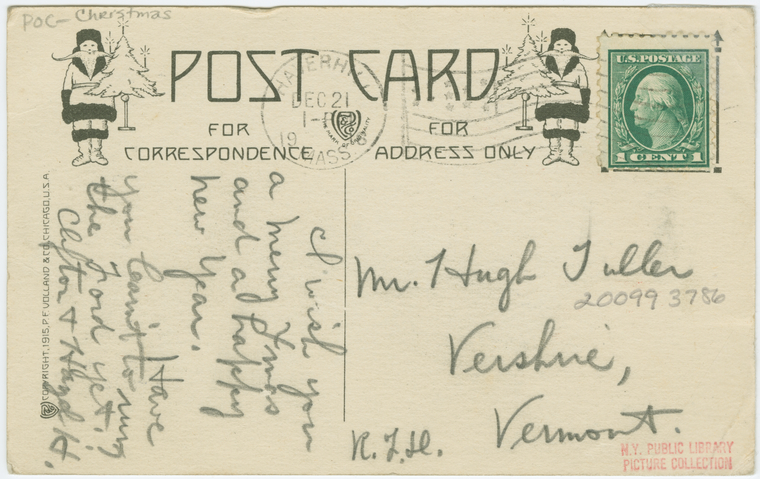 POC- Christmas
POST CARD
FOR
CORRESPONDENCE
FOR
ADDRESS ONLY
HAVERHILL
DEC 21
1-
19
MASS.
U.S. POSTAGE
1 CENT 1
I wish you
a merry Xmas
and a happy
new year.
Have
you learnt to run
the Ford yet?
Clifton & Hazel H.
Mr. Hugh Fuller
20099 3786
Vershire,
Vermont.
R.F.D.
N.Y. PUBLIC LIBRARY
PICTURE COLLECTION
COPYRIGHT, 1915, P.F. VOLLAND & CO. CHICAGO, U.S.A.